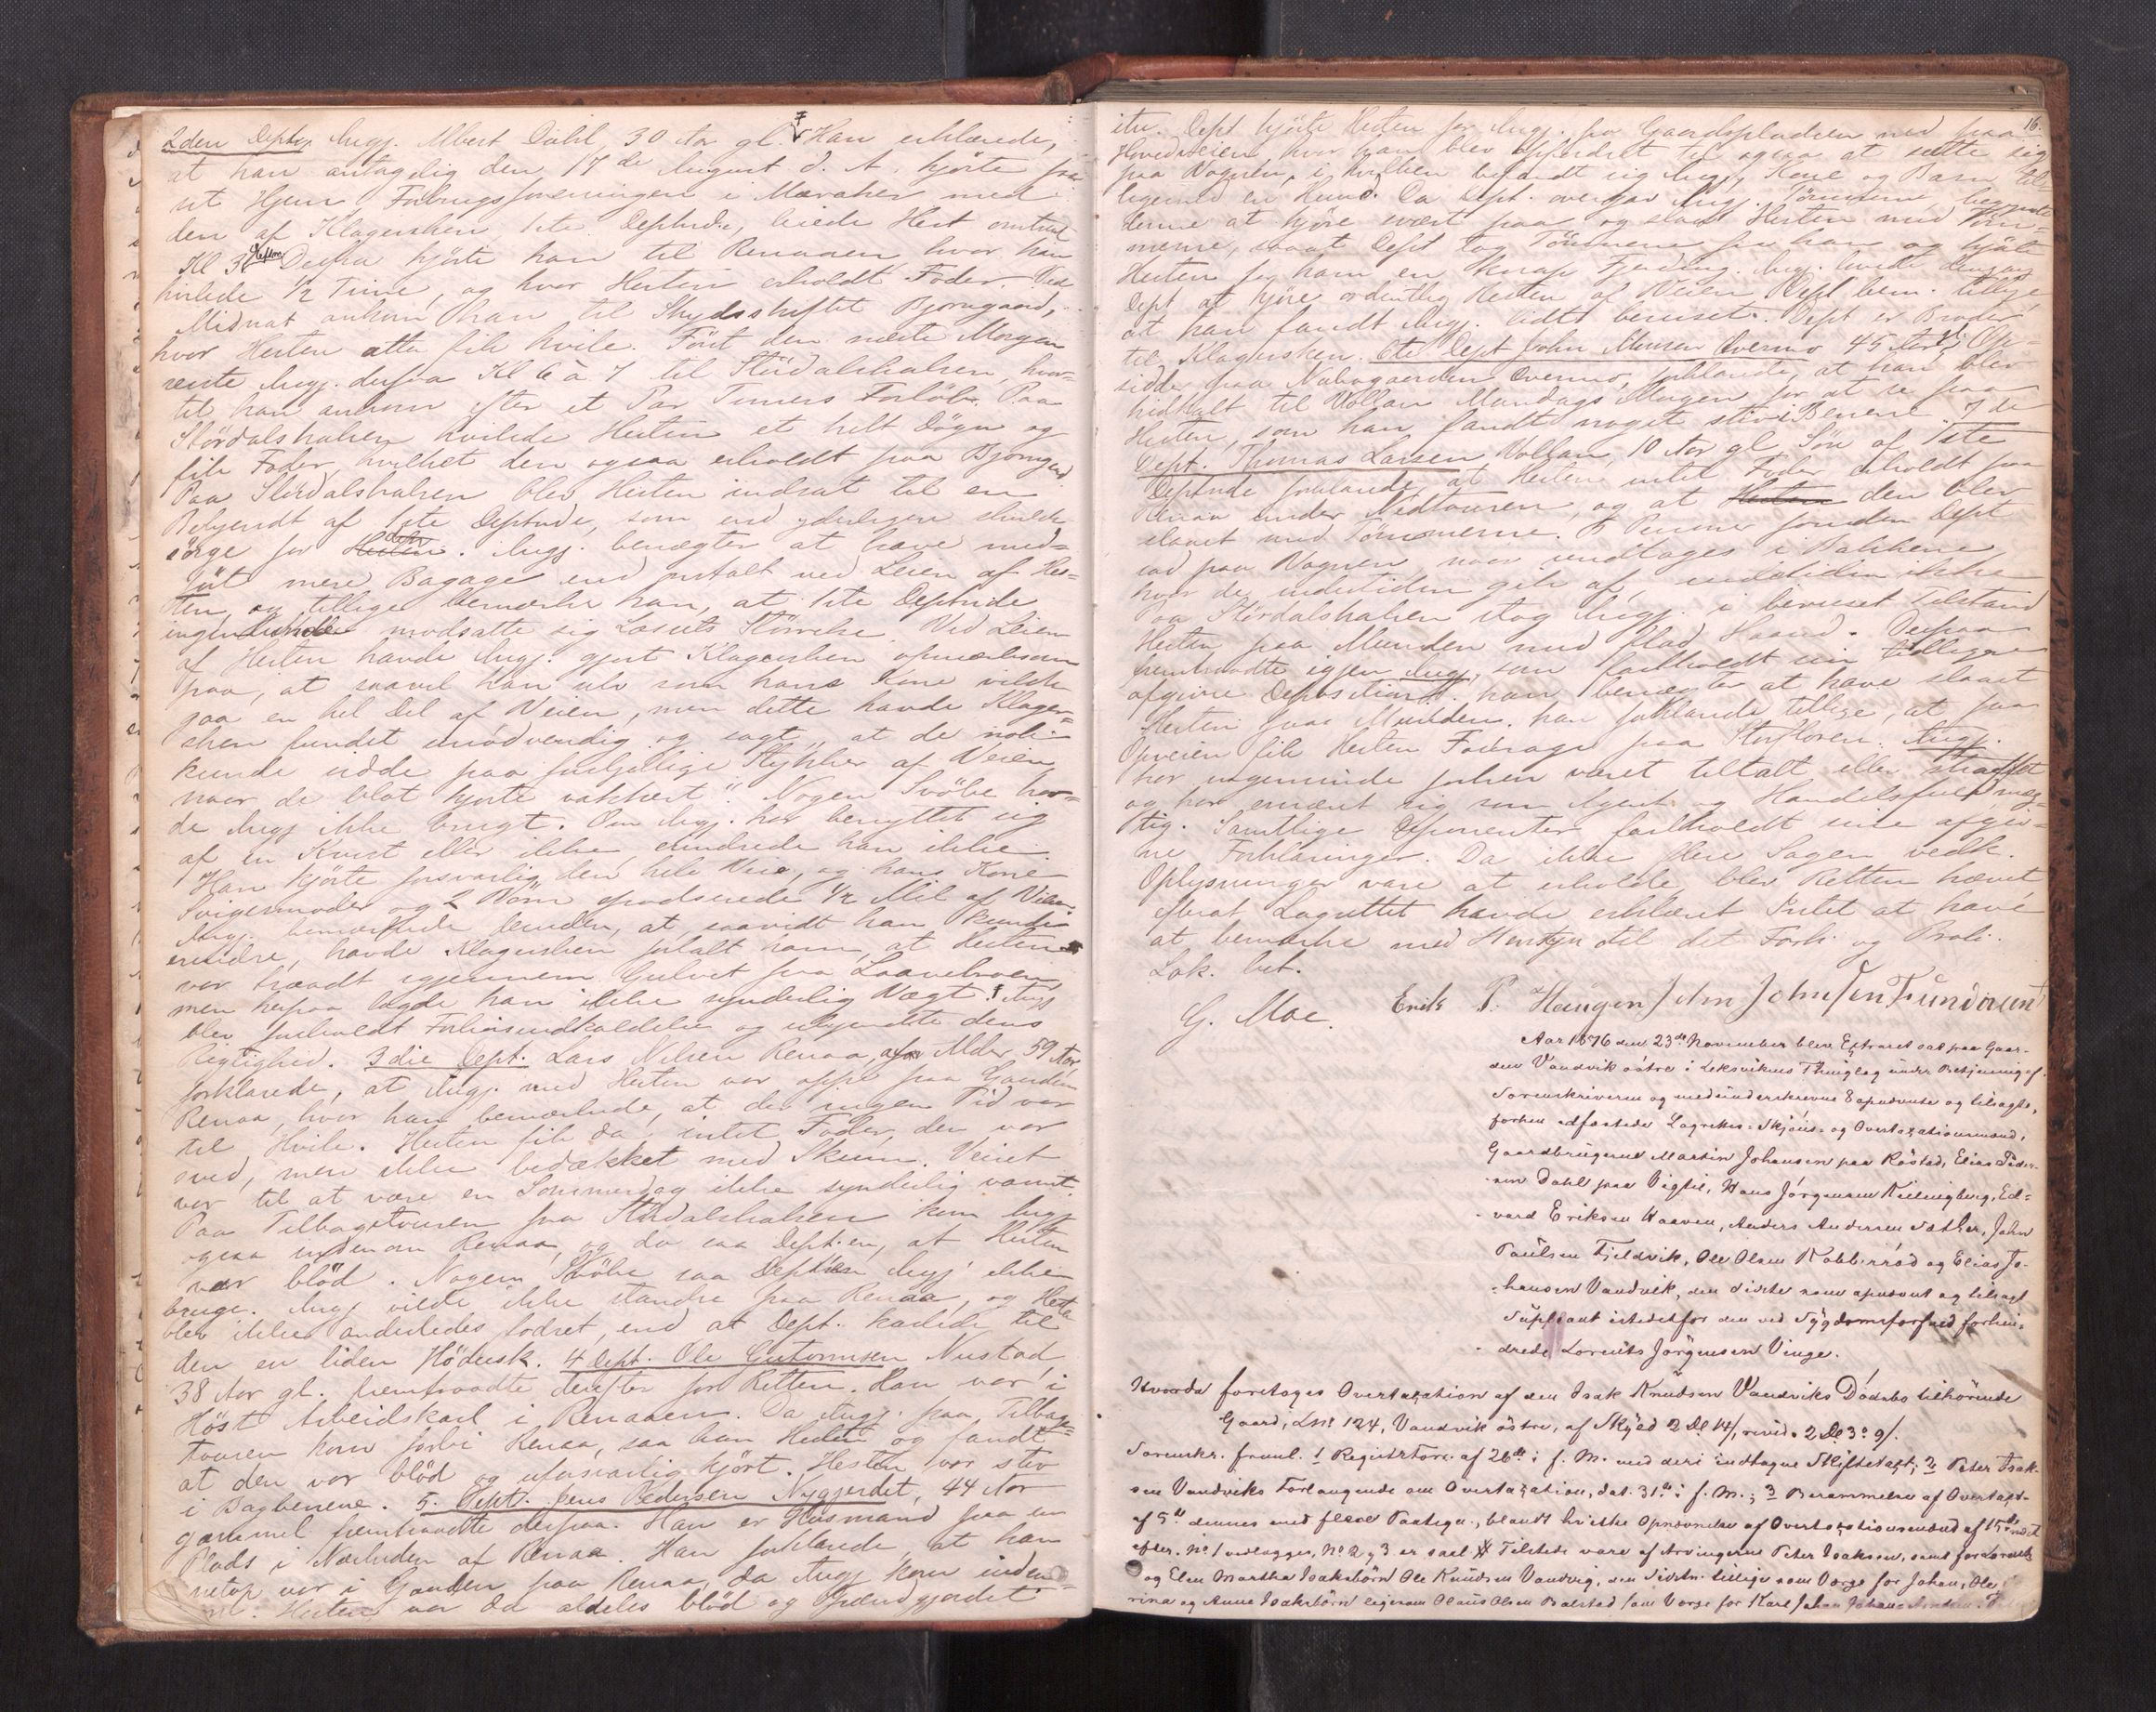 2den Deptn. Angj. Albert Dahl, 30 Aar gl. Han erklærede,
at han antagelig den 17de August d. A. kjörte fra
sit Hjem Forbrugsforeningen i Meraker med
den af Klagersken, 1ste Deptnde, leiede Hest omtrent
Kl 3 Efterm. Derfra kjörte han til Renaaen, hvor han
hvilede 1/2 Time, og hvor Hesten erholdt Foder. Ved
Midnat ankom han til Skydsskiftet Bjorngaard,
hvor Hesten atter fik hvile. Först den næste Morgen
reiste Angj. derfra Kl 6 à 7 til Stördalshalsen, hvor-
til han ankom efter et Par Timers Forlöb. Paa
Stördalshalsen hvilede Hesten et helt Dögn og
fik Foder, hvilket den ogsaa erholdt paa Bjorngrd
Paa Stördalshalsen blev Hesten indsat til en
Bekjendt af 1ste Deptnde, som end yderligere skulde
sörge for Hesten den. Angj. benægter at have med-
fört mere Bagage end omtalt ved Leien af Hes-
ten, og tillige bemærker han, at 1ste Deptnde
ingenlunde modsatte sig Læssets Störrelse. Ved Leien
af Hesten havde Angj. gjort Klagersken opmærksom
paa, at saavel han selv som hans Kone vilde
gaa en hel Del af Veien, men dette havde Klager-
sken fundet unödvendig og sagt, "at de nok
kunde sidde paa forskjellige Stykker af Veien,
naar de blot kjorte vakkert". Nogen Svöbe hav-
de Angj ikke brugt. Om Angj. har benyttet sig
af en Kvist eller ikke erindrede han ikke.
Han kjörte forsvarlig den hele Vei, og hans Kone
Svigermoder og 2 Börn spadserede 1/2 Mil af Veien
Angj. bemærkede desuden, at saavidt han kunde
erindre, havde Klagersken fortalt ham, at Hesten
var traadt igjennem Gulvet paa Laavebroen,
men herpaa lagde han ikke synderlig Vægt. Angj
blev foreholdt Forliksindkaldelse og erkjendte dens
Rigtighed. 3die Dept. Lars Nilsen Renaa, af Alder 59 Aar,
forklarede, at Angj. med Hesten var oppe paa Gaarden
Renaa, hvor han bemærkede, at der ingen Tid var
til Hvile. Hesten fik da intet Foder, den var
sved, men ikke bedækket med Skum. Veiret
var til at være en Sommerdag ikke synderlig varmt.
Paa Tilbageturen fra Stördalshalsen kom Angj
ogsaa indenom Renaa, og da saa Dept.en, at Hesten
var blöd. Nogen Svöbe saa Depten Angj ikke
bruge. Angj vilde ikke standse paa Renaa, og Hesten
blev ikke anderledes fodret, end at Dept. kastede til
den en liden Hödusk. 4 Dept. Ole Guttormsen Nustad
38 Aar gl. fremtraadte derefter for Retten. Han var i
Höst Arbeidskarl i Renaaen. Da Angj. paa Tilbage-
touren kom forbi Renaa, saa han Hesten og fandt
at den var blöd og uforsvarlig kjört. Hesten var stiv
i Bagbenene. 5. Dept. Jens Pedersen Nygjerdet, 44 Aar
gammel fremtraadte derpaa. Han er Husmand paa en
Plads i Nærheden af Renaa. Han forklarede, at han
netop var i Gaarden paa Renaa, da Angj kom inden-
om. Hesten var da aldeles blöd og
16.
itu. Dept kjörte Hesten for Angj. fra Gaardspladsen ned paa
Hovedveien, hvor han blev opfordret til ogsaa at sætte sig
paa Vognen, i hvilken befandt sig Angj, Kone og Barn, til-
ligemed en Hund. Da Dept. overgav Angj. Tömmene, begyndte
denne at kjöre svært paa og slaa Hesten med Töm-
mene, saaat Dept tog Tömmene fra ham og kjörte
Hesten for ham en knap Fjerding. Angj. lovede dengang
Dept at kjöre ordentlig Resten af Veien. Dept bem. tillige,
at han fandt Angj. lidt beruset. Dept er Broder
til Klagersken. 6te Dept John Monsen Overmo 45 Aar gl. Op-
sidder paa Nabogaarden Overmo, forklarede, at han blev
hidkaldt til Vollan Mandags Morgen for at se paa
Hesten, som han fandt noget stiv i Benene. 7de
Dept. Thomas Larsen Vollan, 10 Aar gl Sön af 1ste
Deptnde forklarede, at Hesten intet Foder erholdt paa
Renaa under Nedtouren, og at Hesten den blev
slaaet med Tömmerne. 5 Personer foruden Dept
sad paa Vognen, naar undtages i Bakkene,
hvor de undertiden gik af, undertiden ikke
Paa Stördalshalsen slog Angj. i beruset Tilstand
Hesten paa Munden med flad Haand. Derpaa
fremtraadte igjen Angj, som fastholdt sin tidligere
afgivne Deposition. han benægter at have slaaet
Hesten paa Munden. han forklarede tillige, at paa
Opveien fik Hesten Fourage paa Storfloren. Angj.
har ingensinde forhen været tiltalt eller straffet
og har ernæret sig som Agent og Handelsfuldmæg-
tig. Samtlige Deponenter fastholdt sine afgiv-
ne Forklaringer. Da ikke flere Sagen vedk.
Oplysninger vare at erholde, blev Retten hævet
efterat Lagrettet havde erklæret Intet at have
at bemærke med Hensyn til det Forh. og Prote.
Lok. bet.
G. Moe. Erik P. Haugen John Johnsen Fundaunet
Aar 1876 den 23de November blev Extraret sat paa Gaar-
den Vandvik östre i Leksvikens Thinglag under Betjening af
Sorenskriveren og medunderskrevne 8 opnævnte og tilsagte,
forhen edfæstede Lagrettes- Skjöns- og Overtaxationsmænd,
Gaardbrugerne Martin Johansen paa Röstad, Elias Peder-
sen Dahl paa Vigtil, Hans Jörgensen Killingberg, Ed-
vard Eriksen Haaven, Anders Andersen Sæther, John
Paulsen Fjeldvik, Ole Olsen Kobberrød og Elias Jo-
hansen Vandvik, den sidste som opnævnt og tilsagt
Supleant istedetfor den ved Sygdomsforfald forhin-
drede Lorents Jörgensen Vinge.
Hvorda foretoges Overtaxation af den Isak Knudsen Vandviks Dödsbo tilhörende
Gaard, L.No 124, Vandvik östre, af Skyld 2 Dl 14/, revid. 2 Dl 3 o 9/.
Sorenskr. freml. 1 Registrfor. af 26de i f. M. med deri indtagne Skiftetaxt; 2 Peter Isak-
sen Vandviks Forlangende om Overtaxation, dat. 31te i f. M.; 3 Berammelse af Overtaxt-
af 5te dennes med flere Paategn., blandt hvilke Opnævnelse af Overtaxtionsmænd af 15de næst
efter. No 1 vedlægges, No 2 & 3 er saal. # Tilstede vare af Arvingerne Peter Isaksen, samt for Lorents
og Elen Martha Isaksbörn Ole Knudsen Vandvig, den Sidstn. tillige som Værge for Johan, Ole
rina og Anne Isaksbörn ligesom Olaus Olsen Balstad som Værge for Karl Johan